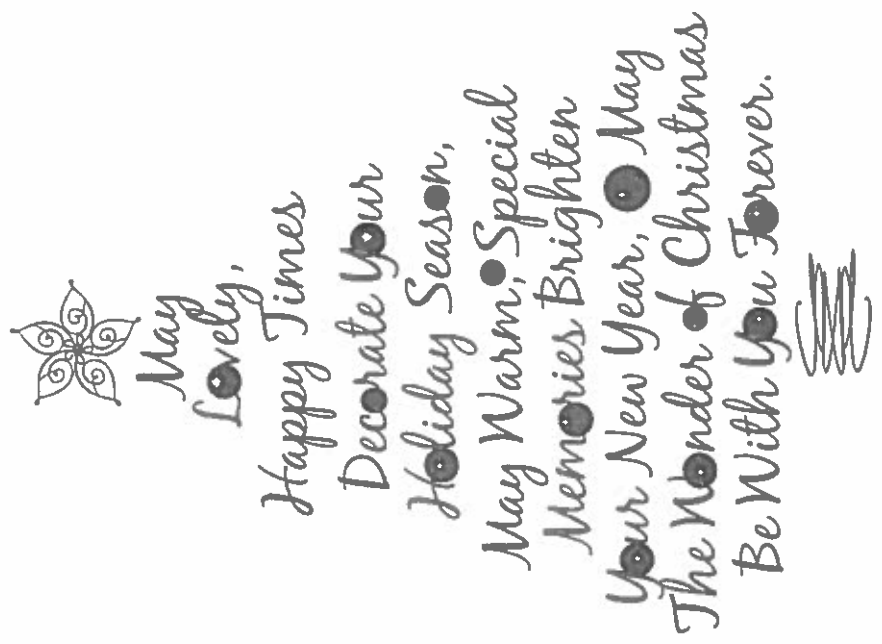 May
Lovely,
Happy Times
Decorate Your
Holiday Season,
May Warm, Special
Memories Brighten
Your New Year, May
The Wonder of Christmas
Be With You Forever.